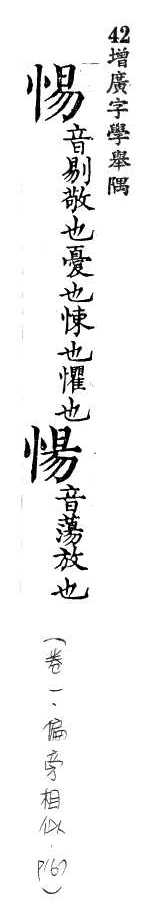 42增廣字學舉隅
惕音剔敬也憂也悚也懼也愓音蕩放也
(卷一·偏旁相似·P167)